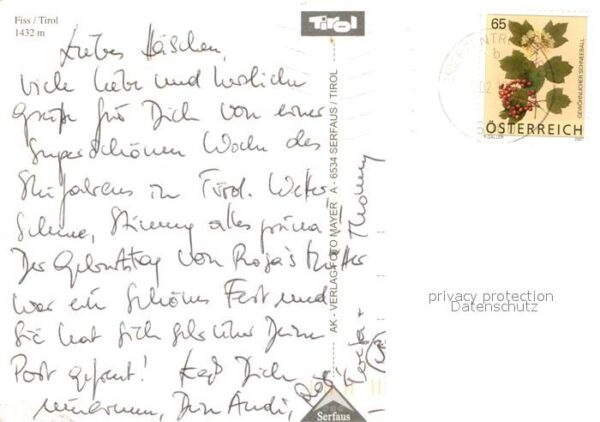 Fiss / Tirol
1432 m
Liebes Häschen,
viele liebe und herzliche
Grüße für Dich von einer
superschönen Woche des
Skifahrens in Tirol. Wetter
Schnee, Stimmung alles prima!
Der Geburtstag von Rosa's Mutter
war ein schönes Fest und
sie hat sich sehr über Deine
Post gefreut! Laß Dich
umarmen, Dein Andi,
Thommy
Tirol
AK - VERLAG FOTO MAYER A - 6534 SERFAUS / TIROL
Serfaus
65
GEWÖHNLICHER SCHNEEBALL
ÖSTERREICH
2007
privacy protection
Datenschutz